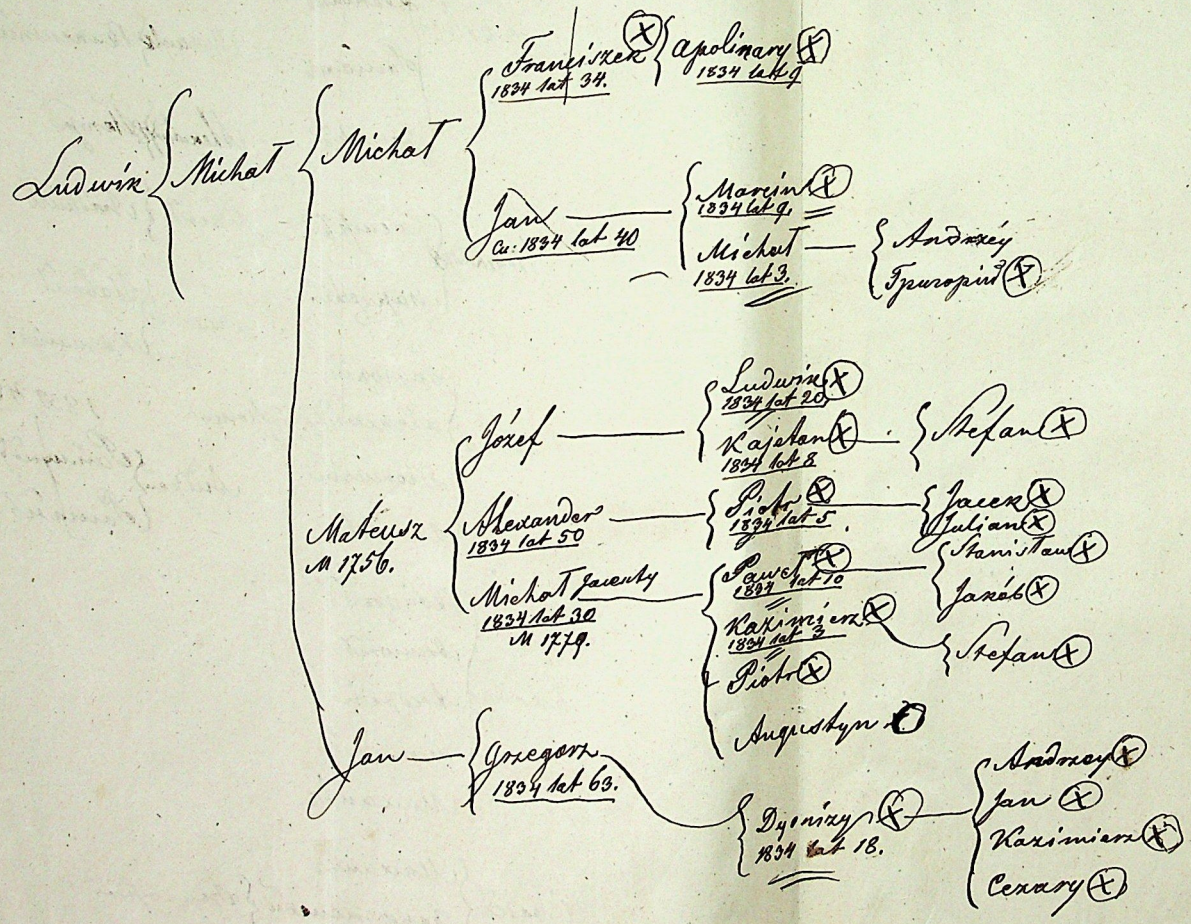 Ludwik
Michał
Michał
Franciszek
1834 lat 34.
Apolinary
1834 lat 9
Jan
Cu: 1834 lat 40
Marcin
1834 lat 9.
Michał
1834 lat 3.
Andrzéy
Mateusz
M 1756.
Józef
Ludwik
1834 lat 20
Kajetan
1834 lat 8
Stefan
Alexander
1834 lat 50
Piotr
1834 lat 5
Jacek
Julian
Michał Jacenty
1834 lat 30
M 1779.
Paweł
1834 lat 10
Stanisław
Jakób
Kazimierz
1834 lat 3
Stefan
Piotr
Augustyn
Jan
Grzegorz
1834 lat 63.
Dyonizy
1834 lat 18.
Andrzey
Jan
Kazimierz
Cezary